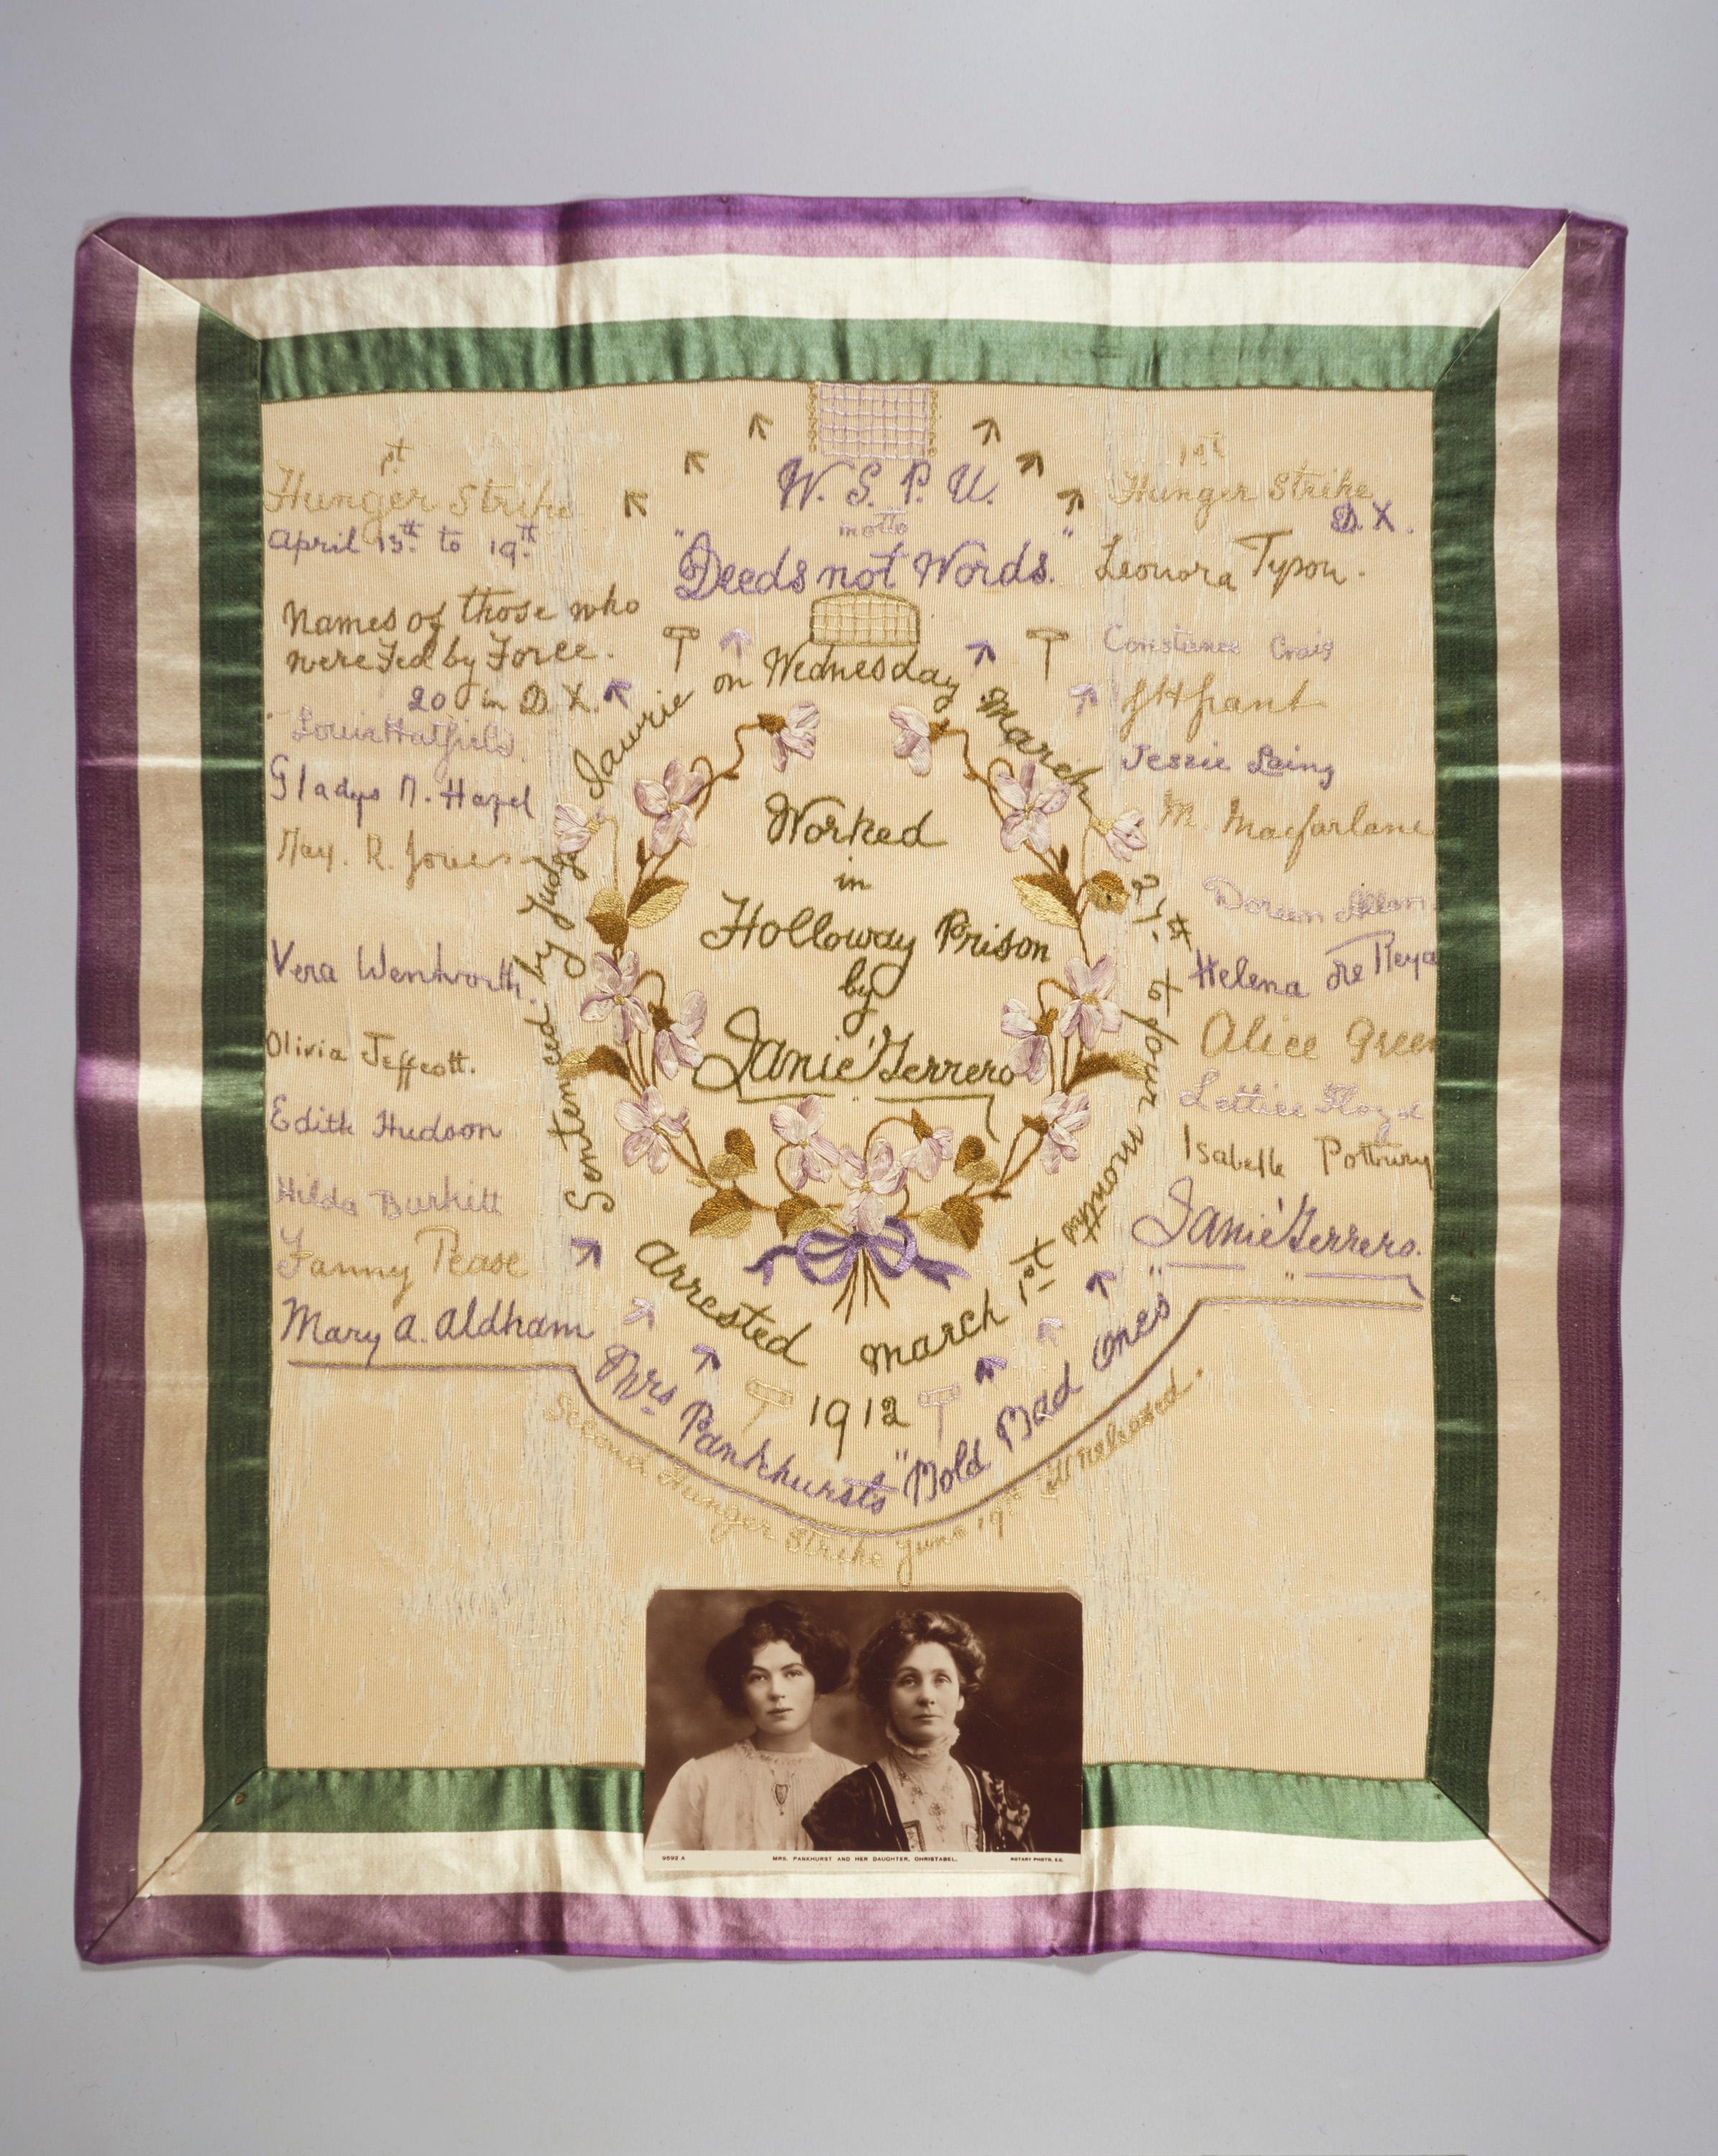 1st
Hunger Strike
April 13th to 19th
Names of those who
were Fed by Force.
20 in D. X.
Louie Hatfield.
Gladys M. Hazel
May. R. Jones
Vera Wentworth.
Olivia Jeffcott.
Edith Hudson
Hilda Burkitt
Fanny Pease
Mary A. Aldham
W. S. P. U.
motto
"Deeds not Words."
Sentenced by Judge Lawrie on Wednesday March 27th to four months
Worked
in
Holloway Prison
by
Janie Terrero
Arrested March 1st
1912
Mrs Pankhursts "Bold Bad Ones"
Second Hunger Strike June 19th till released.
1st
Hunger Strike
D.X.
Leonora Tyson.
Constance Craig
Grant
Jessie Laing
M. Macfarlane
Doreen Allen.
Helena De Reya
Alice Green
Lettice Floyd
Isabelle Potbury
Janie Terrero.
9592 A MRS. PANKHURST AND HER DAUGHTER, CHRISTABEL. ROTARY PHOTO, E.C.